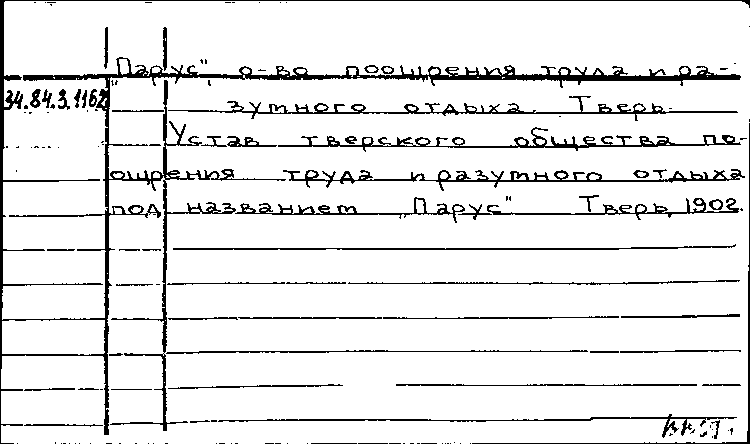 „Парус", о-во поощрения труда и ра-
34.84.3.1162
зумного отдыха. Тверь.
Устав тверского общества по-
ощрения труда и разумного отдыха
под названием „Парус" Тверь, 1902.